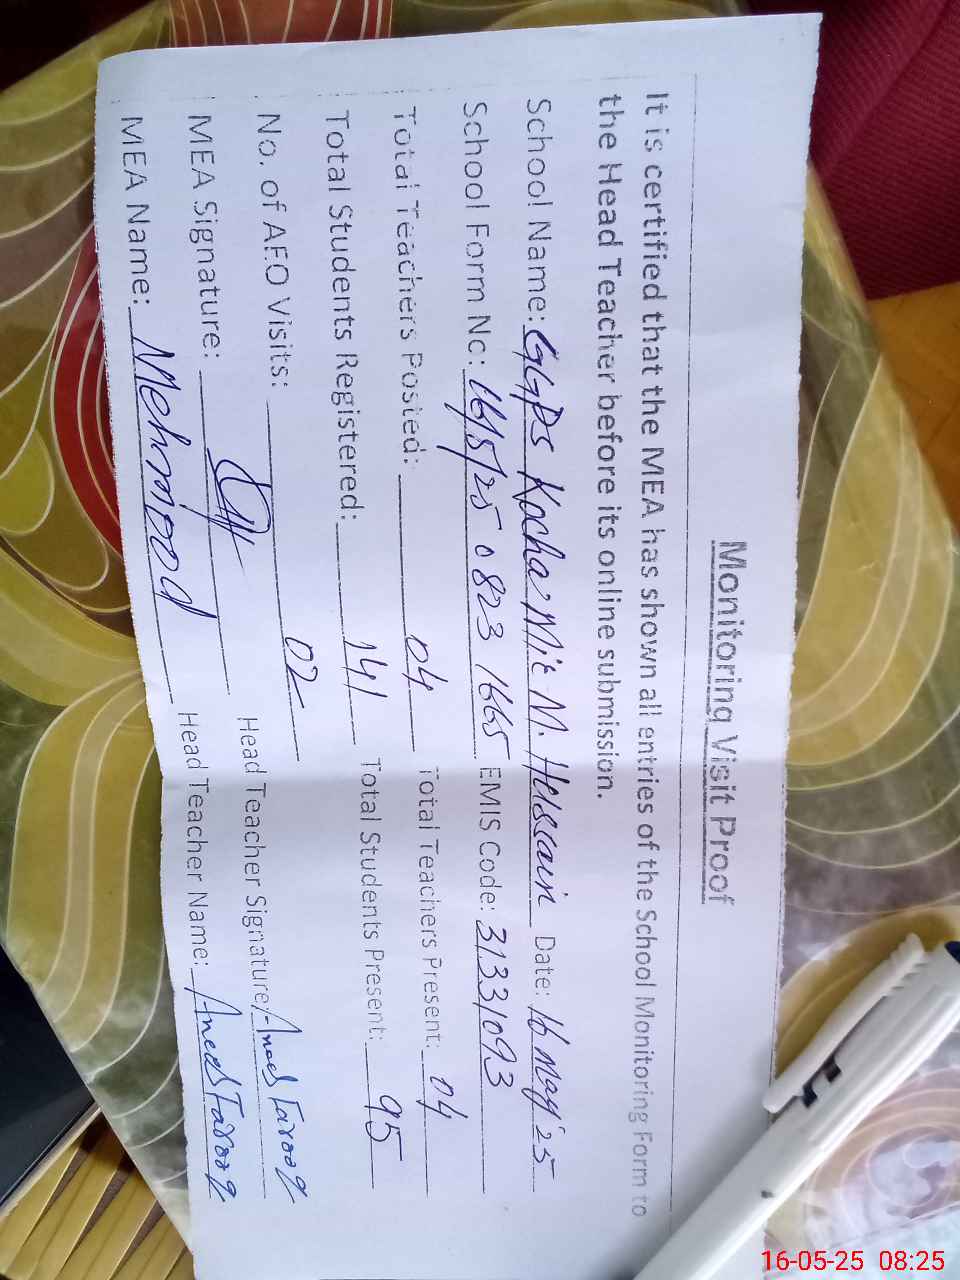 Monitoring Visit Proof
It is certified that the MEA has shown all entries of the School Monitoring Form to
the Head Teacher before its online submission.
School Name: GGPS Kocha Mit M. Hussain Date: 16 May 25
School Form No: 16/5/25 0823 1665 EMIS Code: 31331093
Total Teachers Posted: 04 Total Teachers Present: 04
Total Students Registered: 141 Total Students Present: 95
No. of AEO Visits: 02
MEA Signature: Head Teacher Signature: Anees Farooq
MEA Name: Mehmood Head Teacher Name: Anees Farooq
16-05-25 08:25